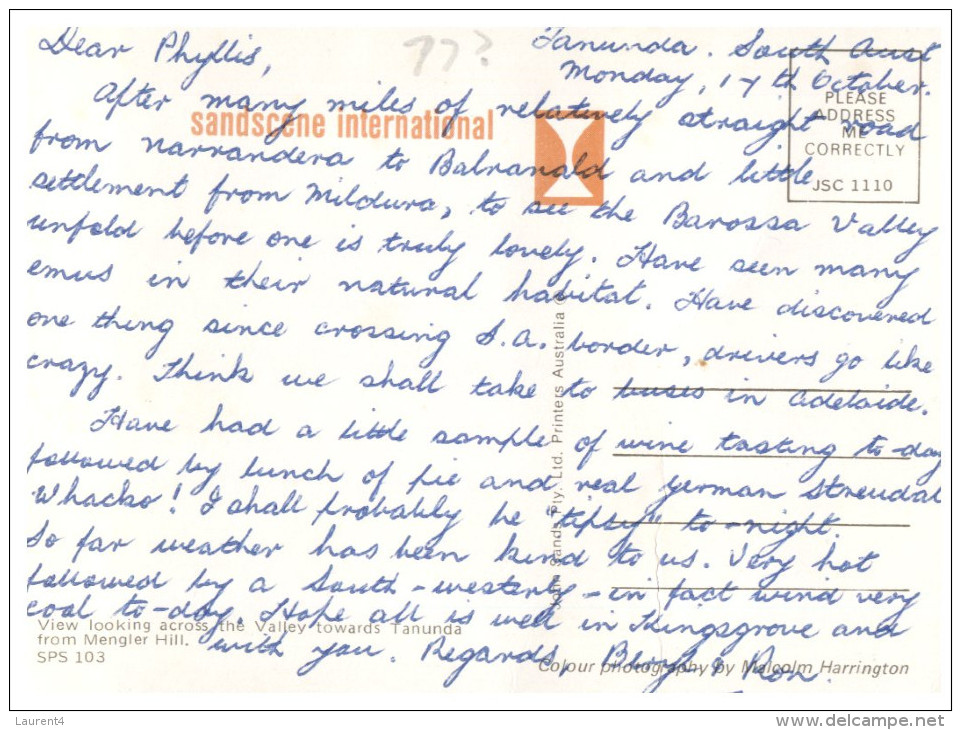 Dear Phyllis,
77?
Tanunda. South Aust
Monday, 17th October.
After many miles of relatively straight road
from Narrandera to Balranald and little
settlement from Mildura, to see the Barossa Valley
unfold before one is truly lovely. Have seen many
emus in their natural habitat. Have discovered
one thing since crossing S.A. border, drivers go like
crazy. Think we shall take to buses in Adelaide.
Have had a little sample of wine tasting to-day
followed by lunch of pie and real german streudal
Whacko! I shall probably be "tipsy" to-night.
So far weather has been kind to us. Very hot
followed by a South-westerly - in fact wind very
cool to-day. Hope all is well in Kingsgrove and
with you. Regards, & Ron.
sandscene international
PLEASE
ADDRESS
ME
CORRECTLY
JSC 1110
Sands Pty. Ltd. Printers Australia ©
View looking across the Valley towards Tanunda
from Mengler Hill.
SPS 103
Colour photography by Malcolm Harrington
Laurent4
www.delcampe.net